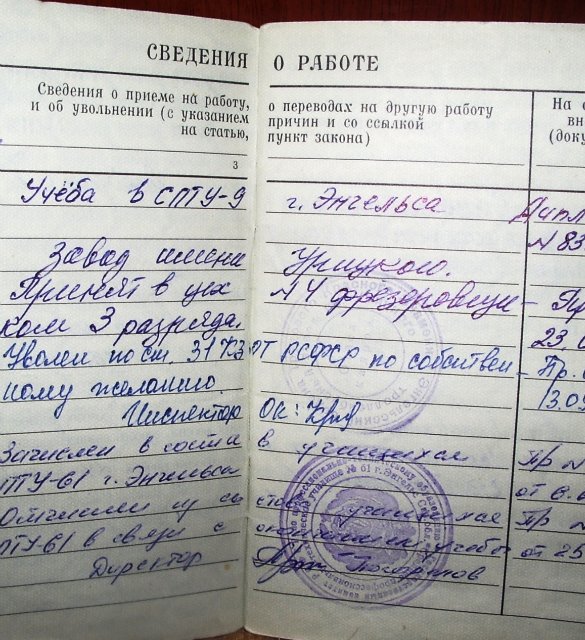 СВЕДЕНИЯ О РАБОТЕ
Сведения о приеме на работу, о переводах на другую работу
и об увольнении (с указанием причин и со ссылкой
на статью, пункт закона)
3
Учёба в СПТУ-9 г. Энгельса
N 83
Завод имени Урицкого.
Принят в цех N 4 фрезеровщи-
ком 3 разряда. 23
Уволен по ст. 31 КЗОТ РСФСР по собствен- Пр.
ному желанию. 13.0
Инспектор ОК:
Зачислен в состав учащихся Пр N
ПТУ-61 г. Энгельса от 6.
Отчислен из состава учащихся Пр N
ПТУ-61 в связи с окончанием учебы от 25
Директор